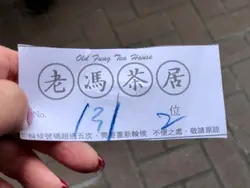 Old Fung Tea House
老馮茶居
No. 131 2 位
輪候號碼超過五次，需要重新輪候 不便之處，敬請原諒